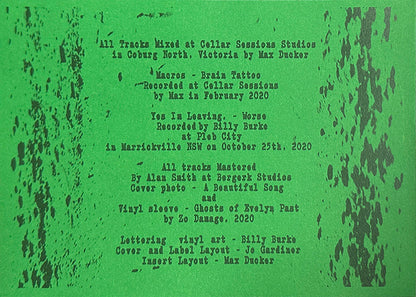 All Tracks Mixed at Cellar Sessions Studios
in Coburg North, Victoria by Max Ducker
Macros - Brain Tattoo
Recorded at Cellar Sessions
by Max in February 2020
Yes Im Leaving. - Worse
Recorded by Billy Burke
at Pleb City
in Marrickville NSW on October 25th, 2020
All tracks Mastered
By Alan Smith at Bergerk Studios
Cover photo - A Beautiful Song
and
Vinyl sleeve - Ghosts of Evelyn Past
by Zo Damage. 2020
Lettering vinyl art - Billy Burke
Cover and Label Layout - Jo Gardiner
Insert Layout - Max Ducker